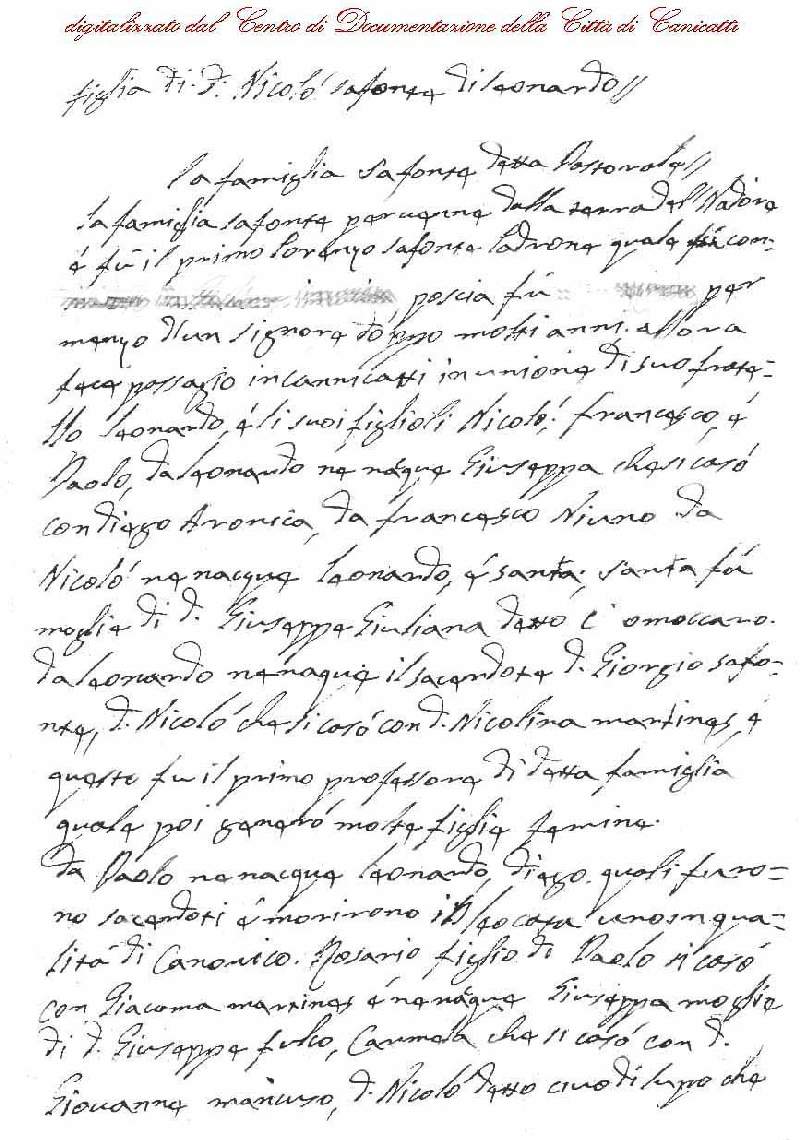 digitalizzato dal Centro di Documentazione della Città di Canicattì
figlia di d. Nicolò safonte di leonardo//
la famiglia safonte detta Pastorale//
la famiglia safonte peruenne dalla terra del Nadore
é fù il primo lorenzo safonte ladrone quale fù con:
poscia fù per
menzo d'un signore doppo molti anni. allora
fece possagio in cannicatti in unione di suo frate=
llo leonardo, é li suoi figlioli Nicolò, francesco, é
Paolo, da leonardo ne nacque Giuseppa che si casò
con diego Aronica, da francesco Niuno da
Nicolò ne nacque leonardo, é santa; santa fù
moglie di d. Giuseppe Giuliana detto l' omoccaro.
da leonardo ne naque il sacerdote d. Giorgio safo=
nte, d. Nicolò che si casò con d. Nicolina martines, é
questo fu il primo professore di detta famiglia
quale poi generò molte figlie femine.
da Paolo ne nacque leonardo, diego. quali furo=
no sacerdoti é morirono in leocata uno in qua=
lità di Canonico. Rosario figlio di Paolo si casò
con Giacoma martines é ne naque Giuseppa moglie
di d. Giuseppe fulco, Carmela che si casò con d.
Giovanne mancuso, d. Nicolò detto cuodilupo che